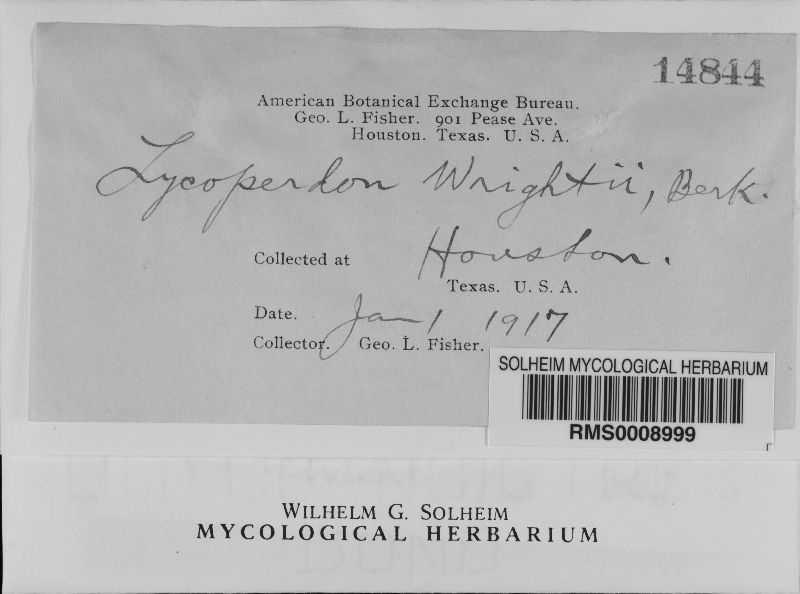 14844
American Botanical Exchange Bureau.
Geo. L. Fisher. 901 Pease Ave.
Houston. Texas. U. S. A.
Lycoperdon Wrightii, Berk.
Collected at Houston.
Texas. U. S. A.
Date. Jan 1 1917
Collector. Geo. L. Fisher.
SOLHEIM MYCOLOGICAL HERBARIUM
RMS0008999
WILHELM G. SOLHEIM
MYCOLOGICAL HERBARIUM